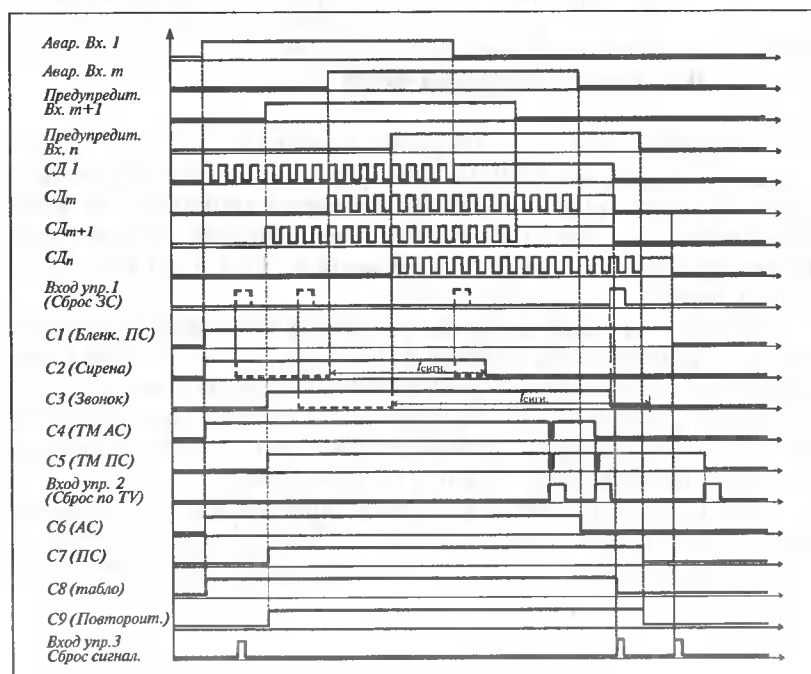 Авар. Вх. 1
Авар. Вх. m
Предупредит.
Вх. m+1
Предупредит.
Вх. n
СД 1
СДm
СДm+1
СДn
Вход упр.1
(Сброс ЗС)
С1 (Бленк. ПС)
tсигн.
С2 (Сирена)
tсигн.
С3 (Звонок)
С4 (ТМ АС)
С5 (ТМ ПС)
Вход упр. 2
(Сброс по TV)
С6 (АС)
С7 (ПС)
С8 (табло)
С9 (Повтороит.)
Вход упр.3
Сброс сигнал.